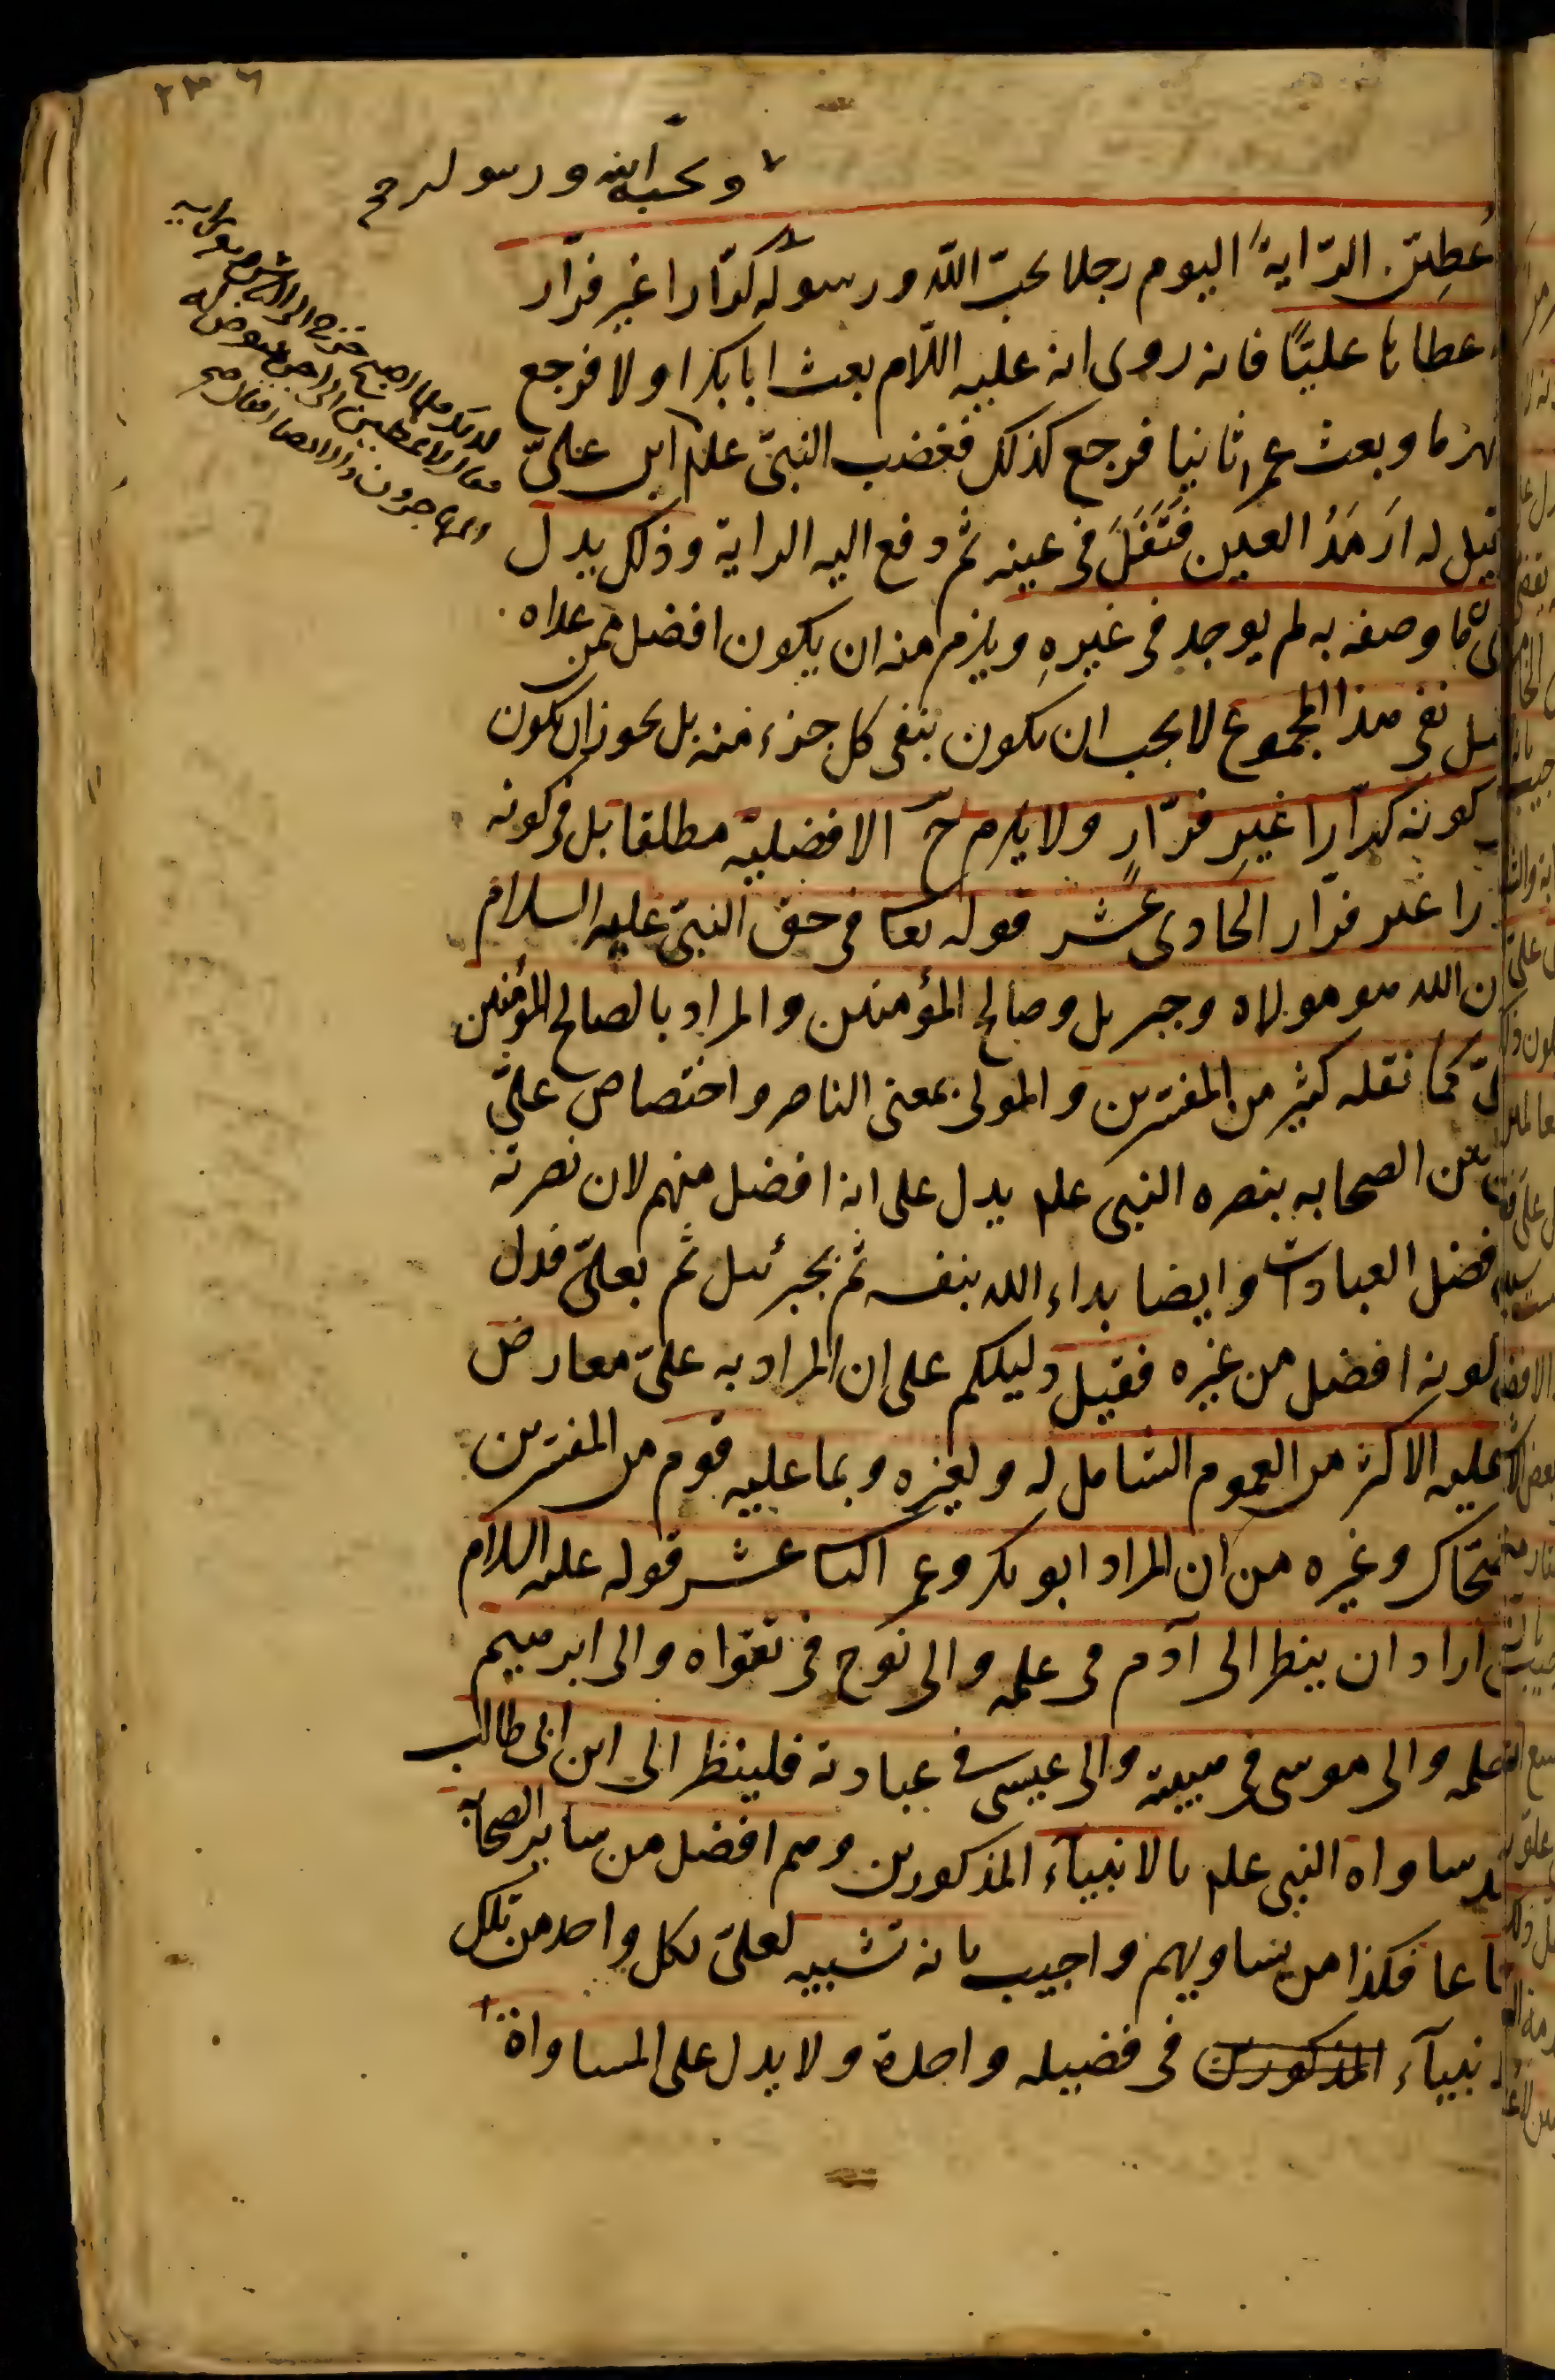 ٢٣٦
ويحبه الله ورسوله صح
عطين الراية اليوم رجلا يحب الله ورسوله كرّارا غير فرّار
عطاها عليًّا فانه روى انه عليه السّلام بعث ابابكر اولا فرجع
نهزما وبعث عمر ثانيا فرجع كذلك فغضب النبىّ علم اين علىّ
قيل له ارمد العين فتفل فى عينه ثم دفع اليه الراية وذلك يدل
ما وصفه به لم يوجد فى غيره ويلزم منه ان يكون افضل ممن عداه
نفى هذا المجموع لا يجب ان يكون بنفى كل جزء منه بل يجوز ان يكون
كونه كرّارا غير فرّار ولا يلزم ح الافضلية مطلقا بل فى كونه
را غير فرّار الحادى عشر قوله تعا فى حق النبىّ عليه السلام
ن الله هو مولاه وجبريل وصالح المؤمنين والمراد بالصالح المؤمنين
لىّ كما نقله كثير من المفسّرين والمولى بمعنى الناصر واختصاص علىّ
من الصحابه بنصره النبى علم يدل على انه افضل منهم لان نصرته
فضل العبادات وايضا بداء الله بنفسه ثم بجبرئيل ثم بعلىّ فدل
كونه افضل من غيره فقيل دليلكم على ان المراد به علىّ معارض
عليه الاكثر من العموم الشامل له ولغيره وبما عليه قوم من المفسّرين
ضحّاك وغيره من ان المراد ابو بكر وعمر الثا عشر قوله عليه السلام
اراد ان ينظر الى آدم فى علمه والى نوح فى تقواه والى ابرهيم
حلمه والى موسى فى هيبته والى عيسى فى عبادته فلينظر الى ابن ابى طالب
قد ساواه النبى علم بالانبياء المذكورين وهم افضل من ساير الصحابة
ماعا فكذا من يساويهم واجيب بانه تشبيه لعلىّ بكل واحد من تلك
نبيآء المذكورين فى فضيله واحدة ولا يدل على المساواة